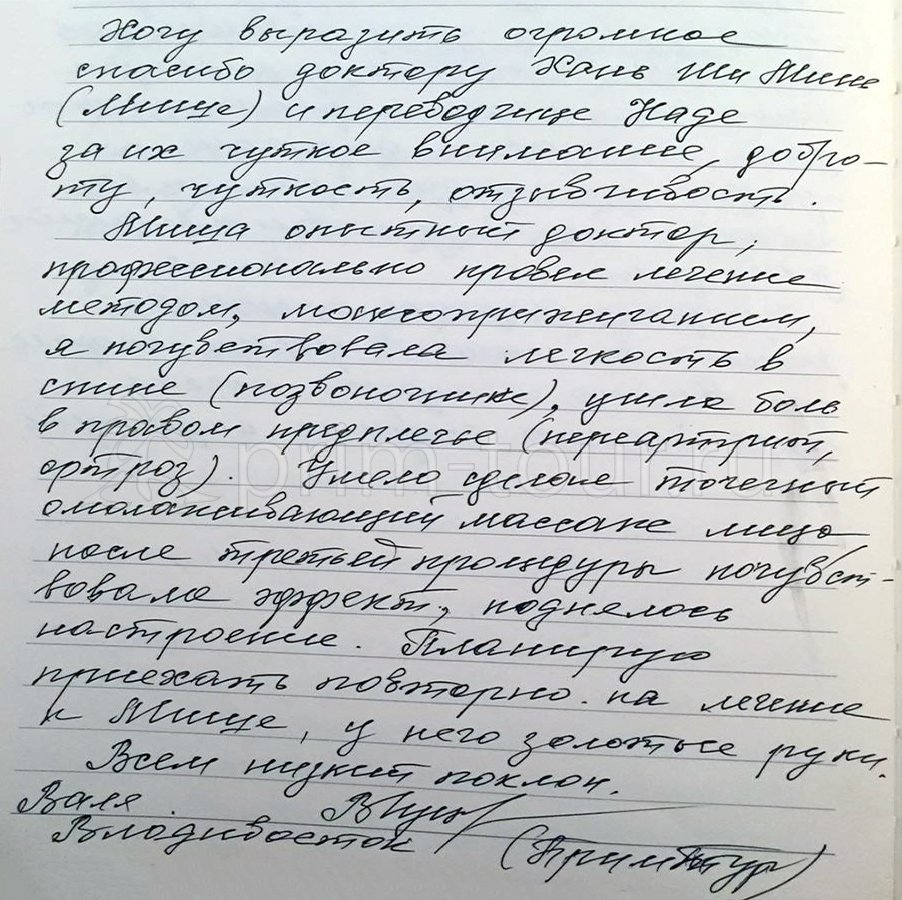 Хочу выразить огромное
спасибо доктору Хань Ши Минь
(Мише) и переводчице Наде
за их чуткое внимание, добро-
ту, чуткость, отзывчивость.
Миша опытный доктор,
профессионально провел лечение
методом, моксоприжиганием,
я почувствовала легкость в
спине (позвоночник), ушла боль
в правом предплечье (периартрит,
артроз). Умело сделан точечный
омолаживающий массаж лица
после третьей процедуры почувст-
вовала эффект, поднялось
настроение. Планирую
приехать повторно на лечение
к Мише, у него золотые руки.
Всем низкий поклон.
Валя
Владивосток (Примтур)
prim-tour.ru